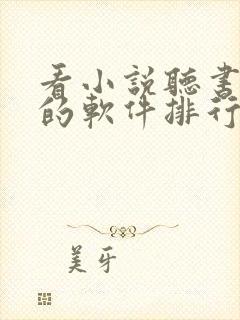 看小説聽書
的軟件排行
美牙